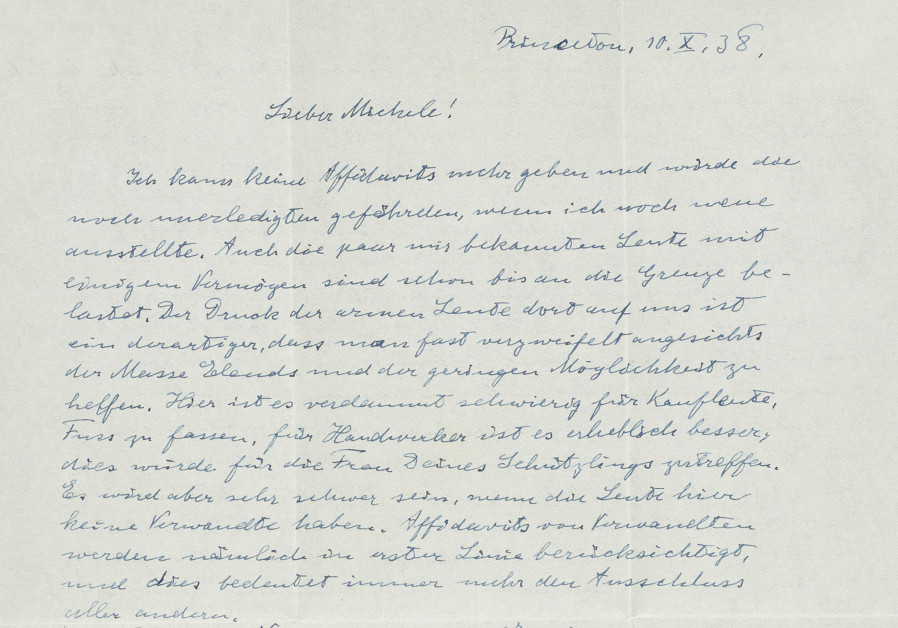 Princeton, 10. X. 38.
Lieber Michele!
Ich kann keine Affidavits mehr geben und würde die
noch unerledigten gefährden, wenn ich noch neue
ausstellte. Auch die paar mir bekannten Leute mit
einigem Vermögen sind schon bis an die Grenze be-
lastet. Der Druck der armen Leute dort auf uns ist
ein derartiger, dass man fast verzweifelt angesichts
der Masse Elends und der geringen Möglichkeit zu
helfen. Hier ist es verdammt schwierig für Kaufleute,
Fuss zu fassen, für Handwerker ist es erheblich besser;
dies würde für die Frau Deines Schützlings zutreffen.
Es wird aber sehr schwer sein, wenn die Leute hier
keine Verwandte haben. Affidavits von Verwandten
werden nämlich in erster Linie berücksichtigt,
und dies bedeutet immer mehr den Ausschluss
aller andern.